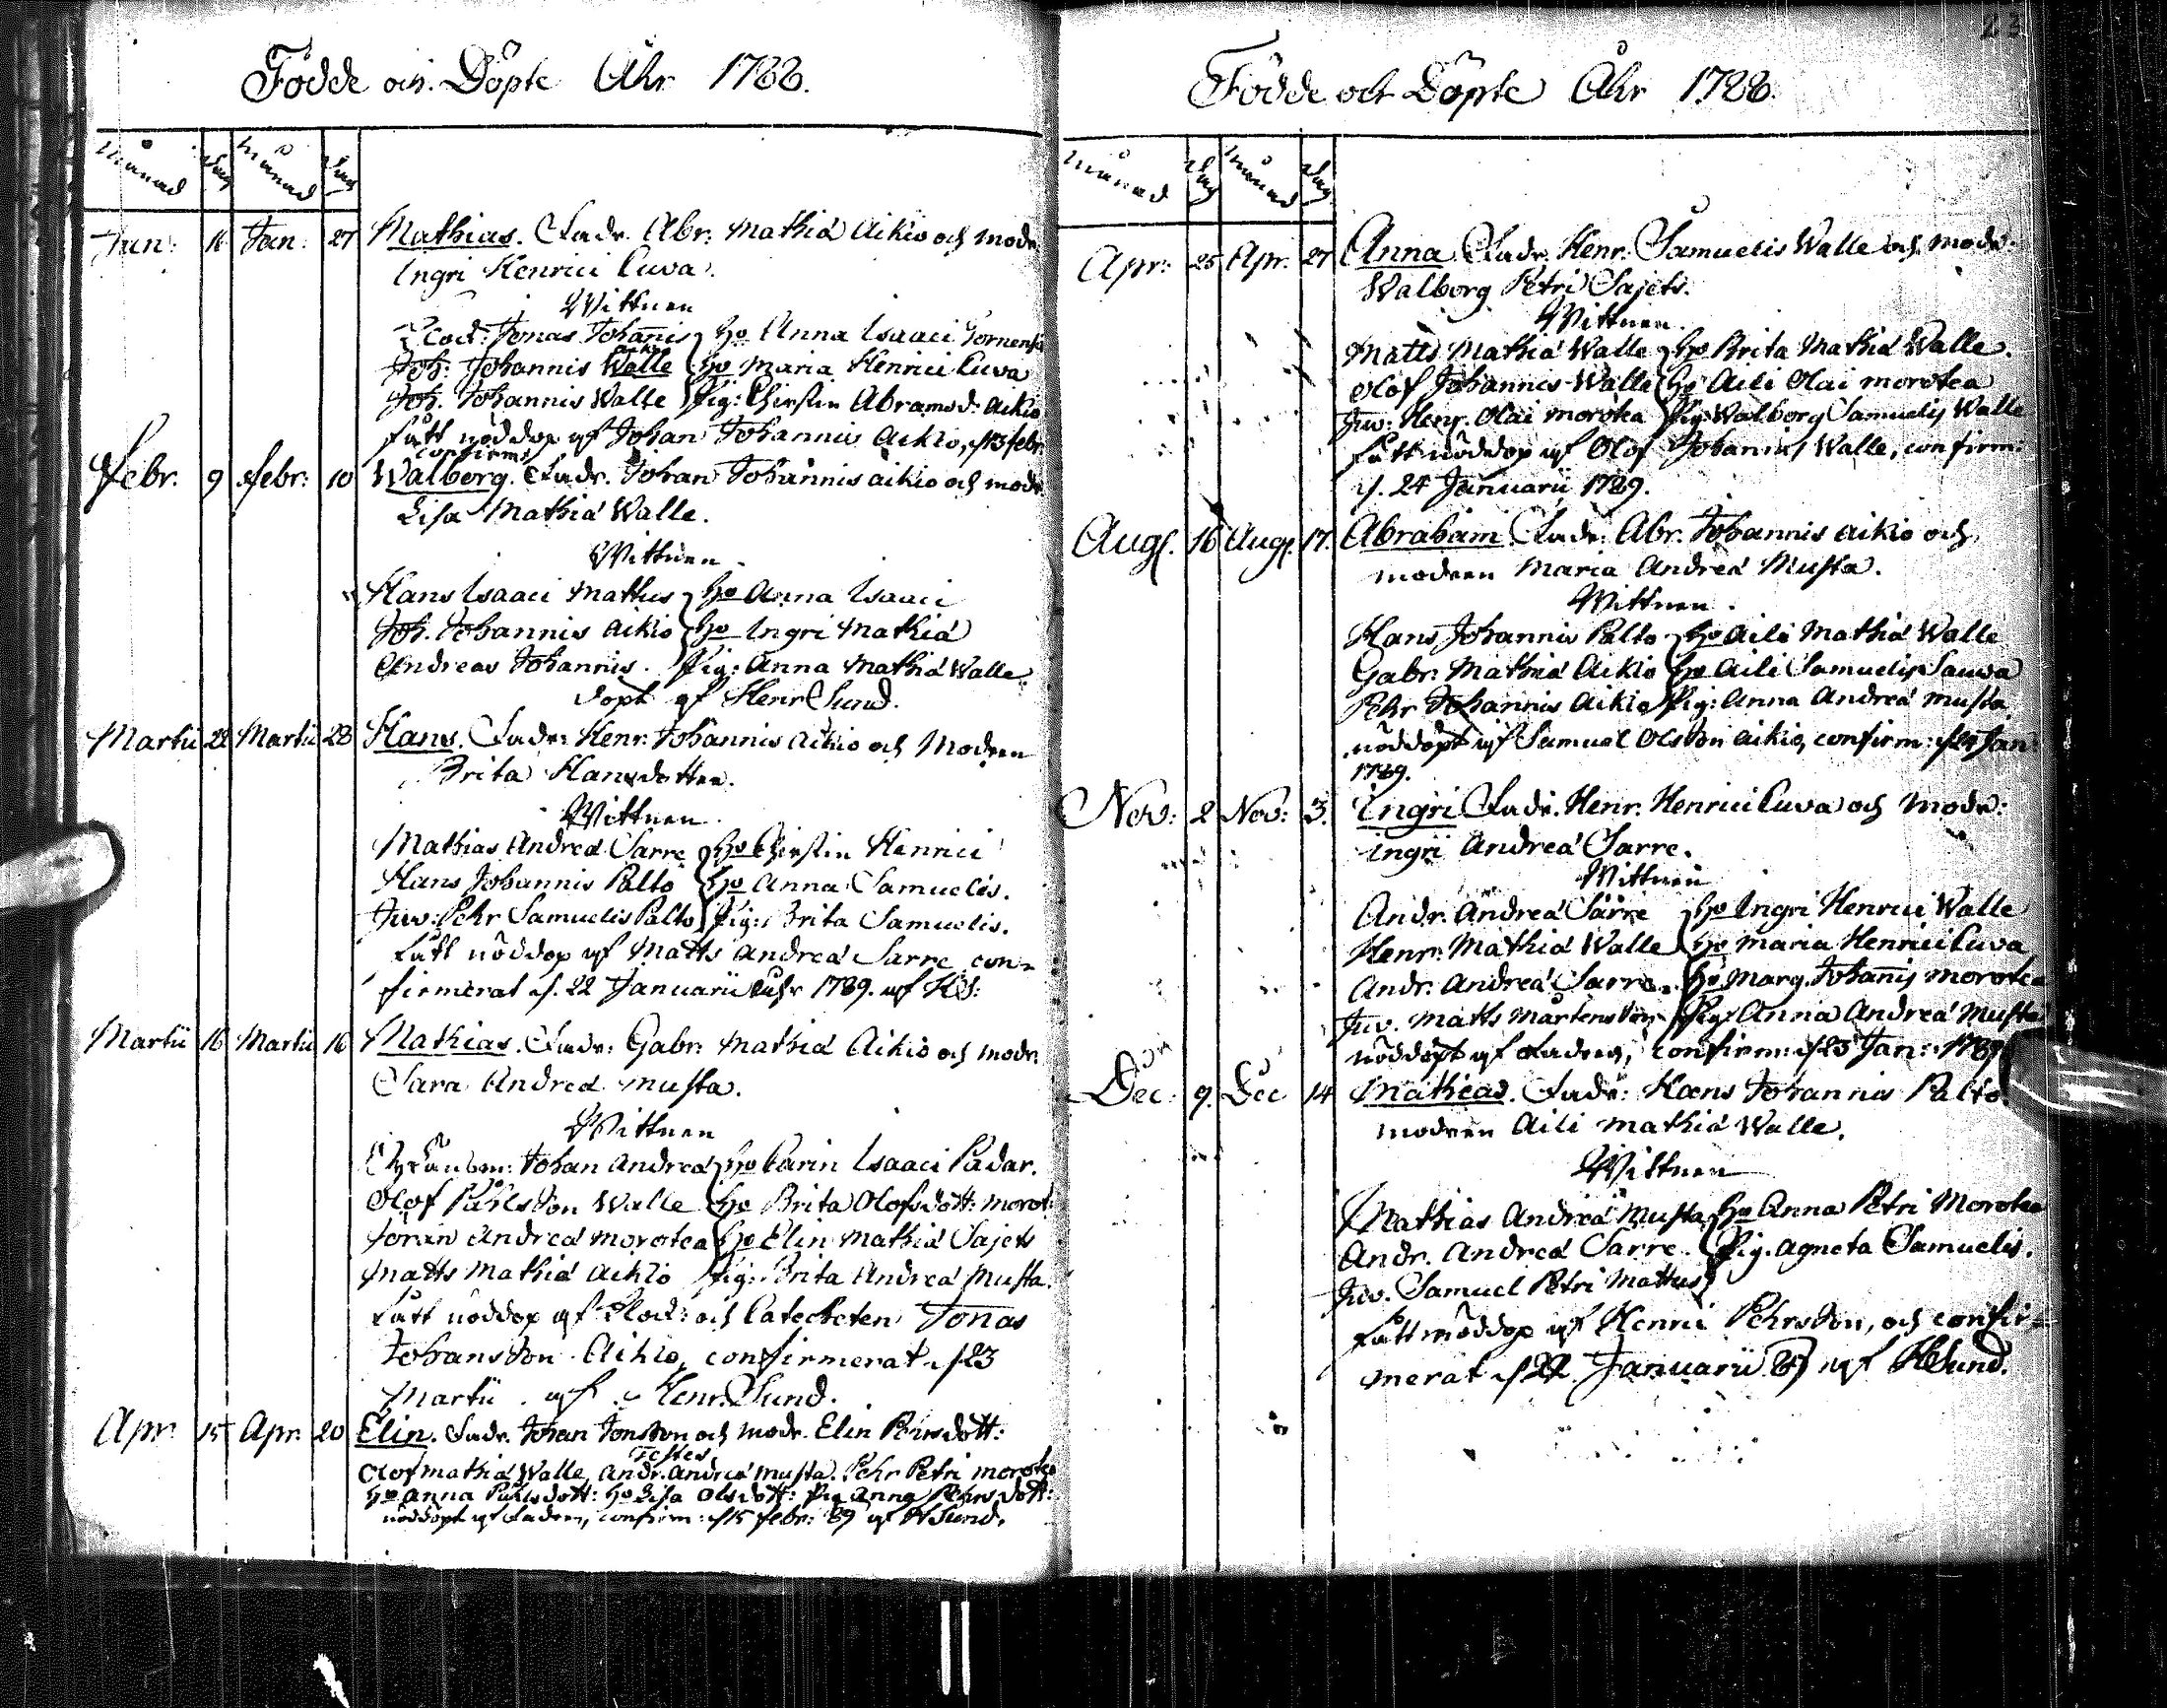 Födde och Döpte Åhr 1788.
Månad Dag Månad Dag
Jan: 16 Jan: 27 Mathias. Fadr. Abr: Mathiæ Aikio och modr:
Ingri Henrici Cuva.
Wittnen
Clock: Jonas Johannis Hu Anna Isaaci Torneus
Joh: Johannis Walle Aikio Hu Maria Henrici Cuva
Joh. Johannis Walle Pig: Chirstin Abramsd: Aikio
fått nöddop af Johan Johannis Aikio, confirm: d. 13 febr:
Febr: 9 Febr: 10 Walborg. Fadr. Johan Johannis Aikio och modr.
Lisa Mathiæ Walle.
Wittnen
Hans Isaaci Mattus Hu Anna Isaaci
Joh. Johannis Aikio Hu Ingri Mathiæ
Andreas Johannis. Pig: Anna Mathiæ Walle
Döpt af Henr Sund.
Martii 22 Martii 23 Hans. Fadr: Henr: Johannis Aikio och Modren
Brita Hansdotter.
Wittnen.
Mathias Andreæ Sarre Hu Chirstin Henrici
Hans Johannis Palto Hu Anna Samuelis.
Juv: Pehr Samuelis Palto Pig: Brita Samuelis.
fått nöddop af Matts Andreæ Sarre con-
firmerat d. 22 Januarii åhr 1789. af HS:
Martii 16 Martii 16 Mathias. Fadr: Gabr: Mathiæ Aikio och modr.
Sara Andreæ Musta.
Wittnen
Johan Andreæ Hu Carin Isaaci Padar.
Olof Påhlsson Walle Hu Brita Olofsdott: Morot:
Jöran Andreæ Morotea Hu Elin Mathiæ Sajets
Matts Mathiæ Aikio Pig: Brita Andreæ Musta.
fått nöddop af Clock: och Catecheten Jonas
Johansson Aikio, confirmerat d. 23
Martii af Henr. Sund.
Apr 15 Apr: 20 Elin. Fadr. Johan Jonsson och modr. Elin Pehrsdott:
Testes
Olof Mathiæ Walle, Andr. Andreæ Musta. Pehr Petri Morotea
Hu Anna Påhlsdott: Hu Lisa Olsdott: Pig Anna Pehrsdott:
nöddöpt af Fadren, confirm: d. 15 febr: 89 af HSund.
23
Födde och Döpte Åhr 1788.
Månad Dag Månad Dag
Apr: 25 Apr: 27 Anna Fadr. Henr: Samuelis Walle och modr.
Walborg Petri Sajets.
Wittnen.
Matts Mathiæ Walle Hu Brita Mathiæ Walle.
Olof Johannis Walle Hu Aili Olai Morotea
Juv: Henr. Olai Morotea Pig: Walborg Samuelis Walle
fått nöddop af Olof Johannis Walle, confirm:
d. 24 Januarii 1789.
Aug. 16 Aug. 17. Abraham Fadr: Abr. Johannis Aikio och
modren Maria Andreæ Musta.
Wittnen.
Hans Johannis Palto Hu Aili Mathiæ Walle
Gabr: Mathiæ Aikio Hu Aili Samuelis Sauva
Pehr Johannis Aikio Pig: Anna Andreæ Musta
nöddöpt af Samuel Olsson Aikio, confirm: d. 24 Jan:
1789.
Nov: 2 Nov: 3. Ingri Fadr. Henr. Henrici Cuva och Modr:
Ingri Andreæ Sarre.
Wittnen
Andr. Andreæ Sarre Hu Ingri Henrici Walle
Henr: Mathiæ Walle Hu Maria Henrici Cuva
Andr. Andreæ Sarre. Hu Marg. Johannis Morotea
Juv. Matts Mårtensson Pig: Anna Andreæ Musta
nöddöpt af Fadren, confirm: d. 23 Jan: 1789
Dec: 9. Dec 14 Mathias. Fadr: Hans Johannis Palto.
modren Aili Mathiæ Walle.
Wittnen
Mathias Andreæ Musta Hu Anna Petri Morotea
Andr. Andreæ Sarre. Pig. Agneta Samuelis.
Juv. Samuel Petri Mattus
fått nöddop af Henric Pehrsson, och confir-
merat d. 22. Januarii 89 af HSund.